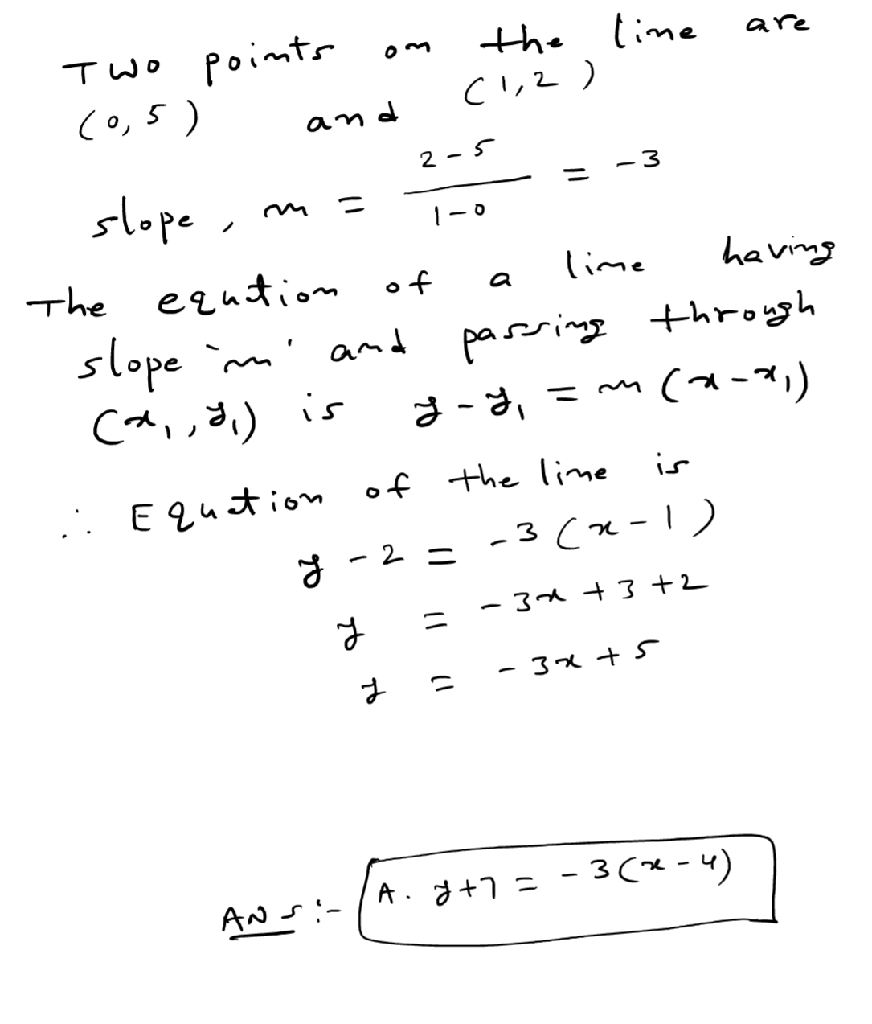 Two points on the line are
(0, 5) and (1, 2)
slope, m = (2-5)/(1-0) = -3
The equation of a line having
slope 'm' and passing through
(x₁, y₁) is y - y₁ = m (x - x₁)
∴ Equation of the line is
y - 2 = -3 (x - 1)
y = -3x + 3 + 2
y = -3x + 5
Ans :- A. y + 7 = -3(x - 4)